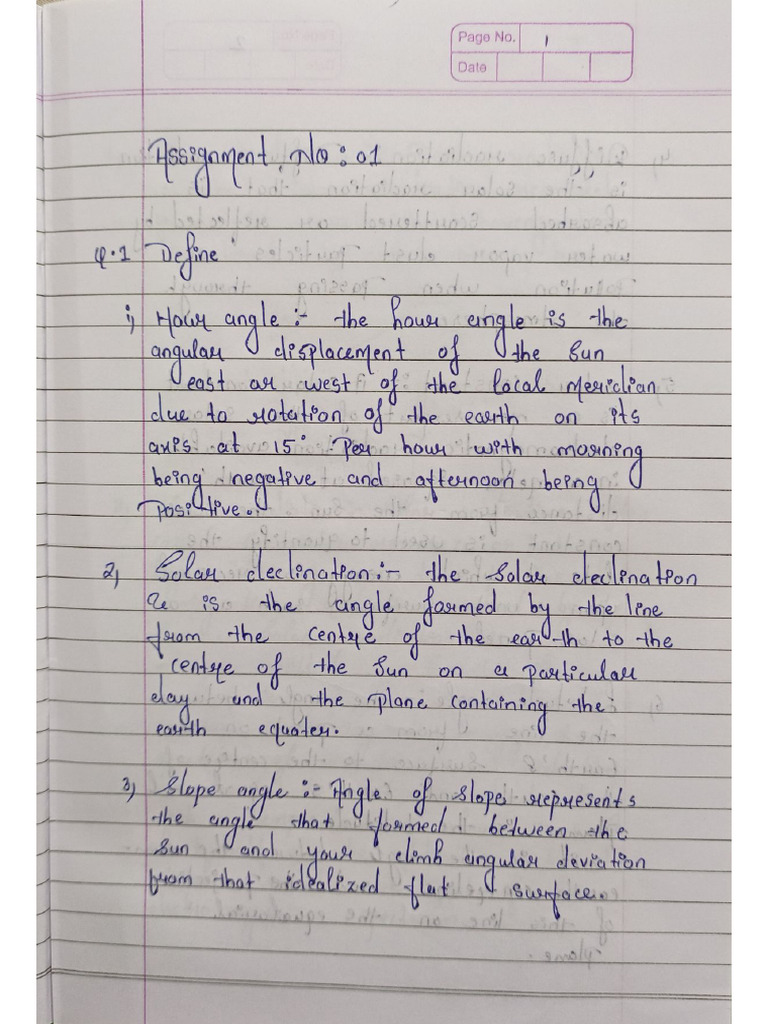 Page No. 1
Date
Assignment No : 01
Q.1 Define
i, Hour angle :- the hour angle is the
angular displacement of the sun
east or west of the local meridian
due to rotation of the earth on its
axis at 15° Per hour with morning
being negative and afternoon being
Positive.
2, Solar declination :- the solar declination
is the angle formed by the line
from the centre of the earth to the
centre of the sun on a particular
day and the plane containing the
earth equater.
3, Slope angle :- Angle of slope represents
the angle that formed between the
sun and your climb angular deviation
from that idealized flat surface.